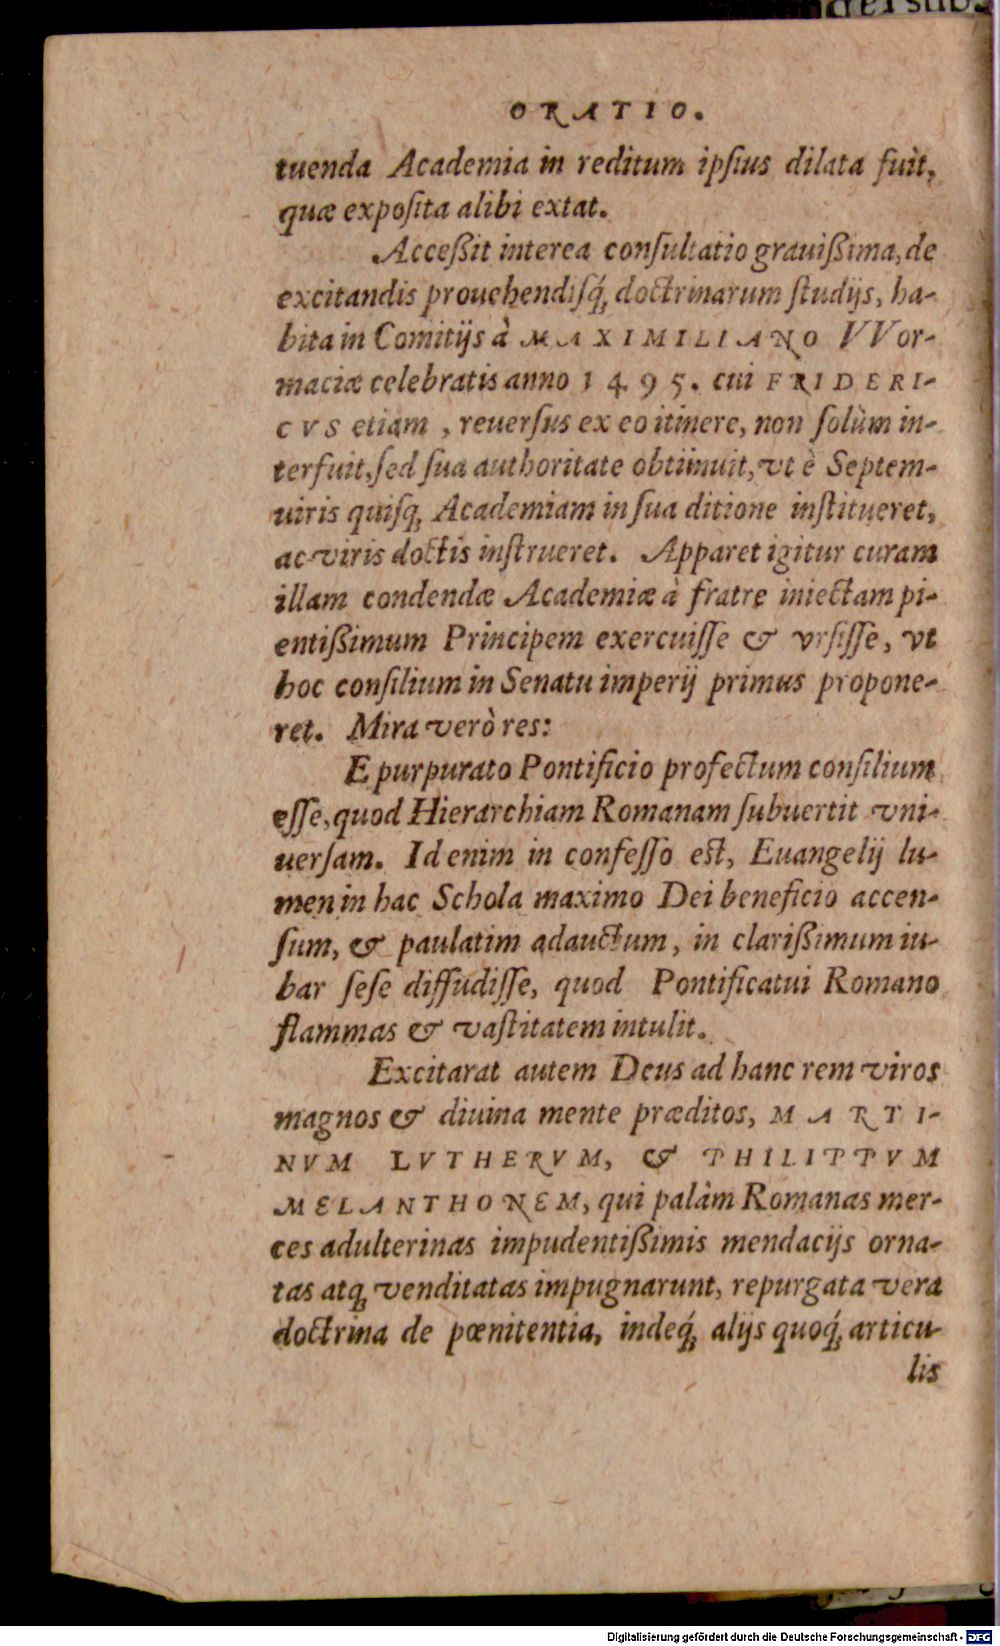 ORATIO.
tuenda Academia in reditum ipſius dilata fuit,
quæ expoſita alibi extat.
Acceßit interea conſultatio grauißima, de
excitandis prouehendiſq́; doctrinarum ſtudijs, ha-
bita in Comitijs à MAXIMILIANO VVor-
maciæ celebratis anno 1495. cui FRIDERI-
CVS etiam, reuerſus ex eo itinere, non ſolùm in-
terfuit, ſed ſua authoritate obtinuit, vt è Septem-
uiris quiſq; Academiam in ſua ditione inſtitueret,
ac viris doctis inſtrueret. Apparet igitur curam
illam condendæ Academiæ à fratre iniectam pi-
entißimum Principem exercuiſſe & vrſiſſe, vt
hoc conſilium in Senatu imperij primus propone-
ret. Mira verò res:
E purpurato Pontificio profectum conſilium
eſſe, quod Hierarchiam Romanam ſubuertit vni-
uerſam. Id enim in confeſſo eſt, Euangelij lu-
men in hac Schola maximo Dei beneficio accen-
ſum, & paulatim adauctum, in clarißimum iu-
bar ſeſe diffudiſſe, quod Pontificatui Romano
flammas & vaſtitatem intulit.
Excitarat autem Deus ad hanc rem viros
magnos & diuina mente præditos, MARTI-
NVM LVTHERVM, & PHILIPPVM
MELANTHONEM, qui palàm Romanas mer-
ces adulterinas impudentißimis mendacijs orna-
tas atq; venditatas impugnarunt, repurgata vera
doctrina de pœnitentia, indeq́; alijs quoq́; articu-
lis
Digitalisierung gefördert durch die Deutsche Forschungsgemeinschaft - DFG